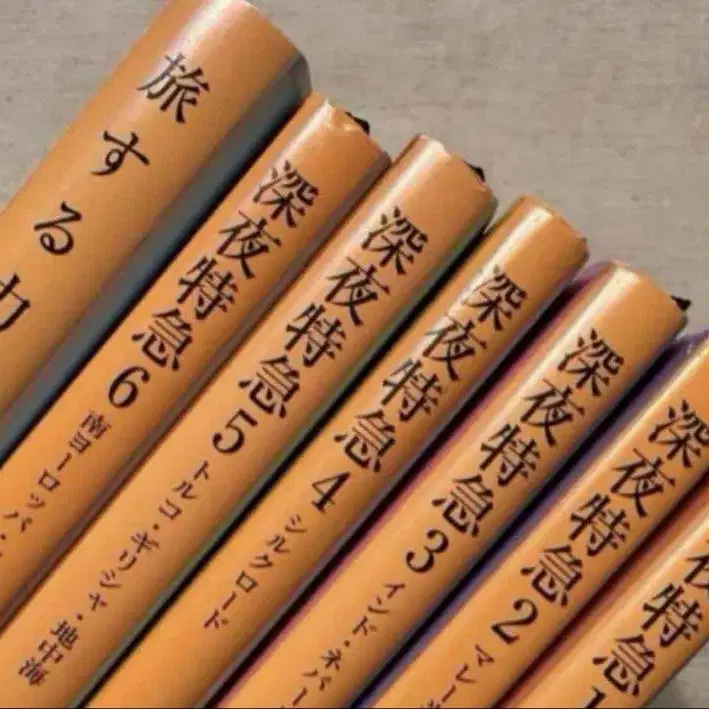 旅する力
深夜特急6
南ヨーロッパ・
深夜特急5
トルコ・ギリシャ・地中海
深夜特急4
シルクロード
深夜特急3
インド・ネパー
深夜特急2
マレー
夜特急1